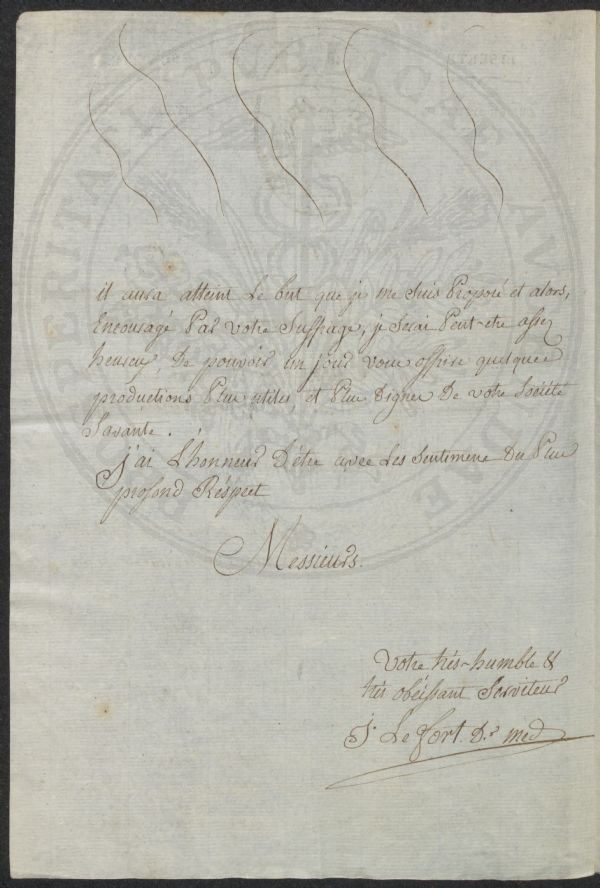 il aura atteint Le but que je me suis Proposé et alors,
Encouragé Par votre Suffrage, je serai Peut-etre assez
heureux, De pouvoir un jour vous offrir quelques
productions Plus utiles, et Plus Dignes De votre Société
Savante.
j'ai L'honneur D'être avec Les Sentimens Du Plus
profond Réspect
Messieurs.
Votre très-humble &
très obéissant Serviteur
J. Le fort. D.r med
PROSPERITATI PUBLICAE AU